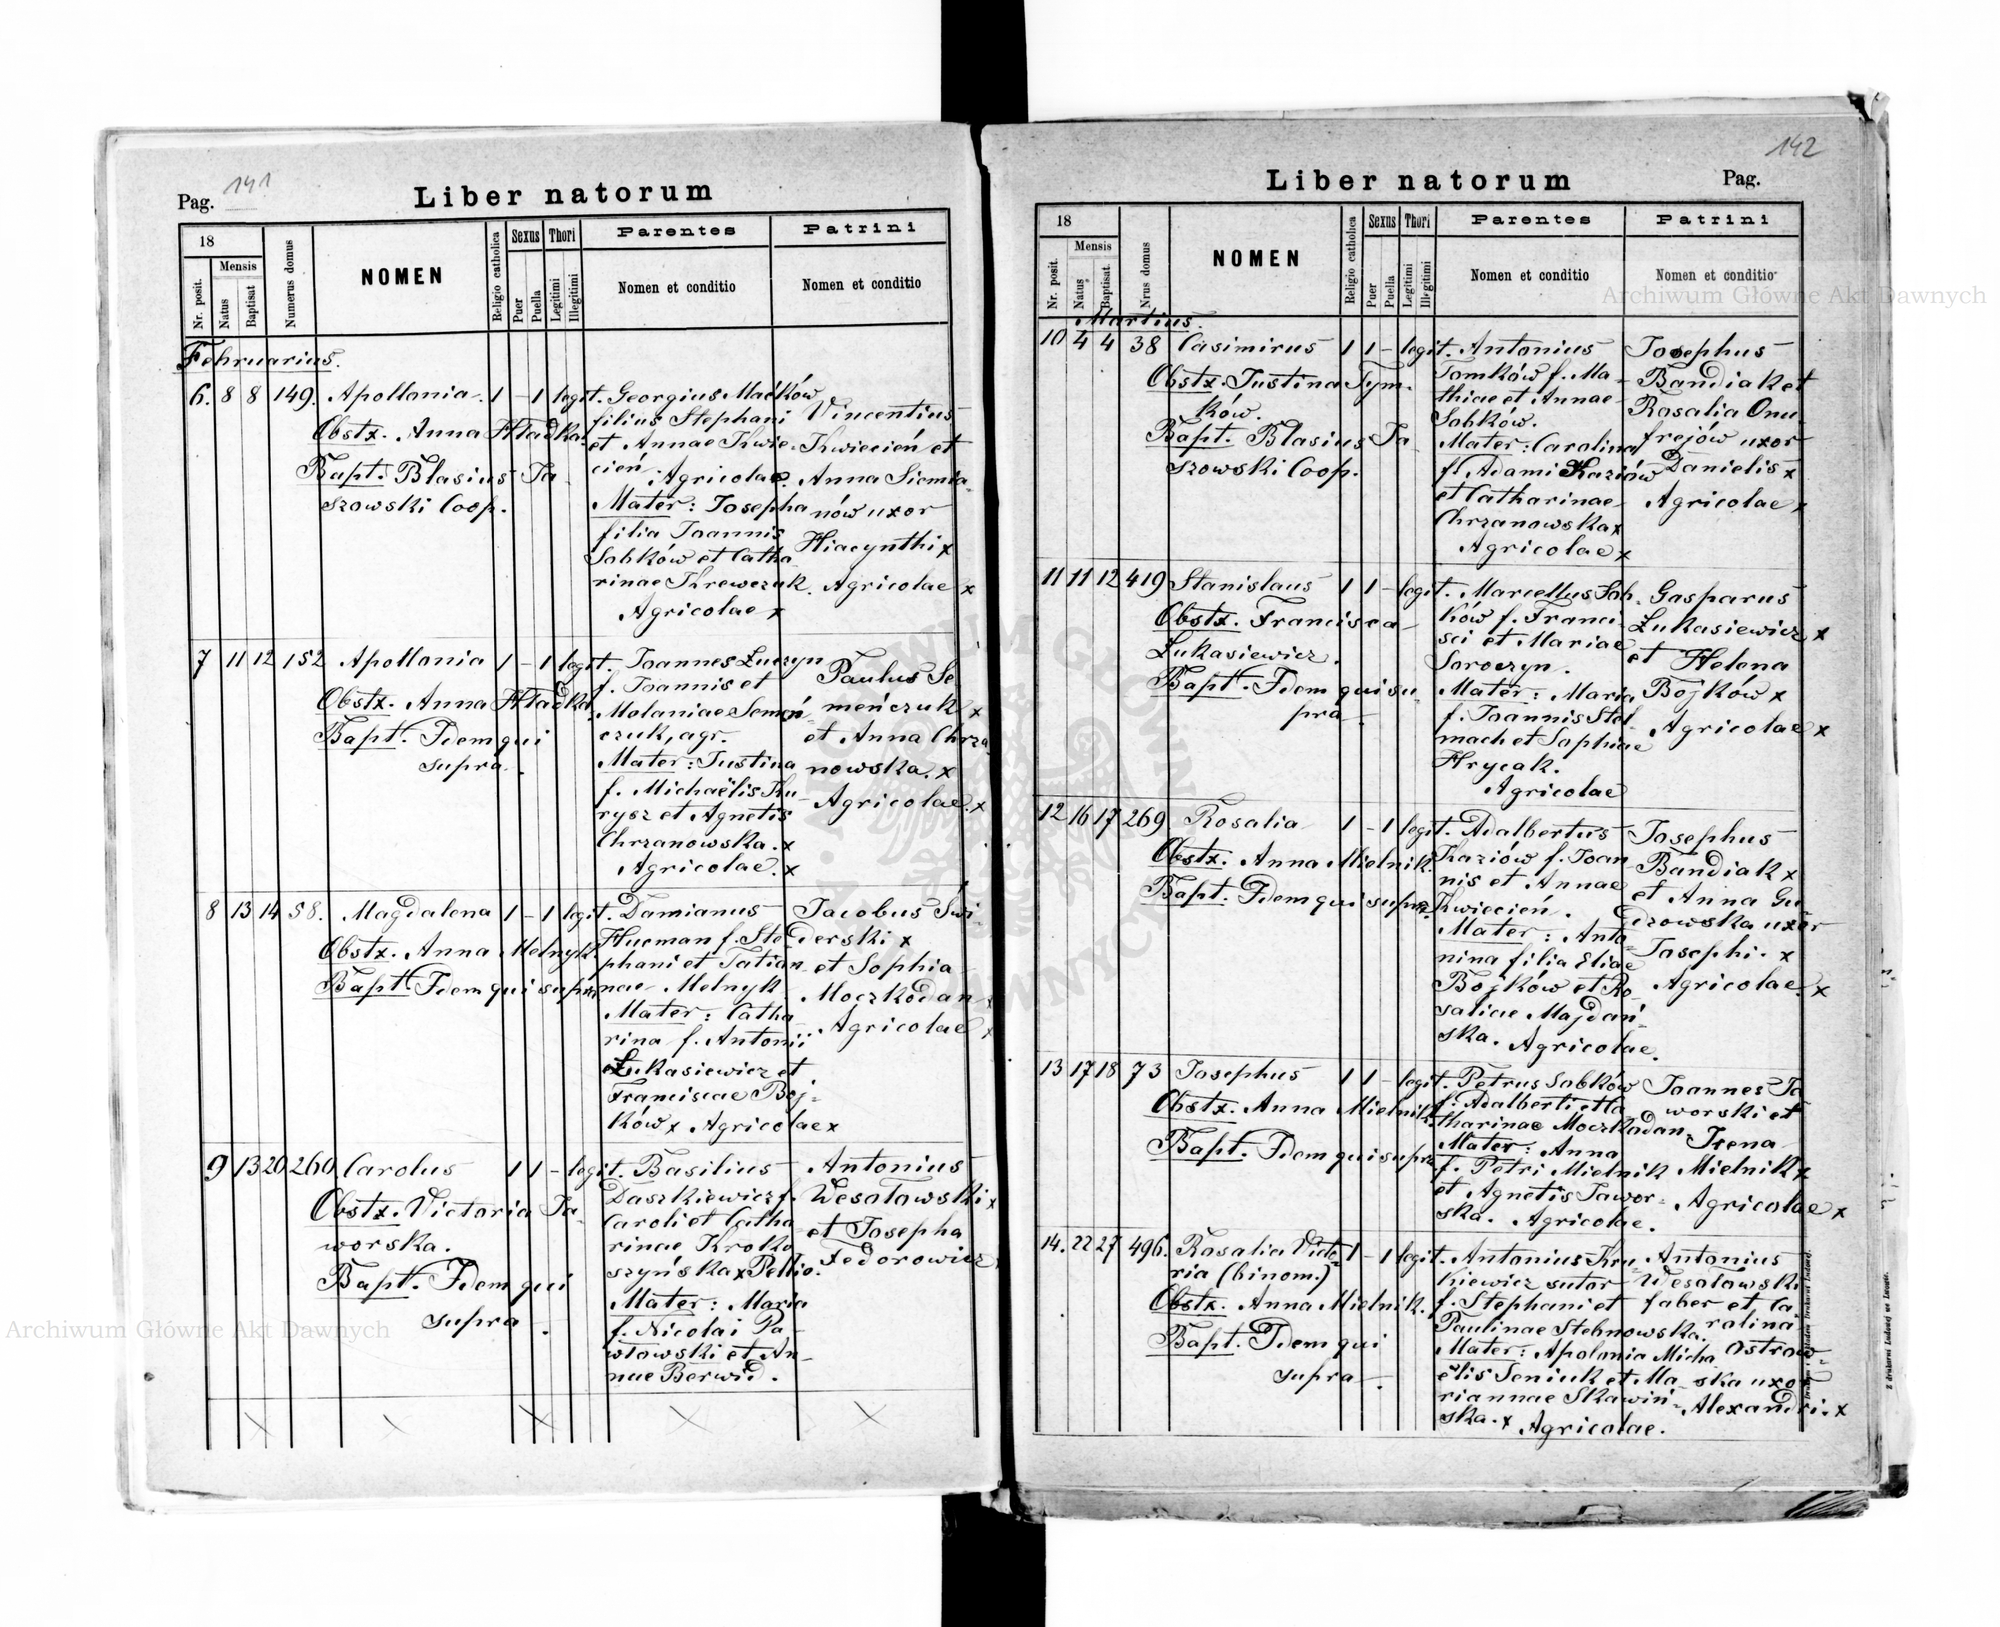 Pag. 141
Liber natorum
18
Mensis
Nr. posit.
Natus
Baptisat
Numerus domus
NOMEN
Religio catholica
Sexus
Puer
Puella
Thori
Legitimi
Illegitimi
Parentes
Nomen et conditio
Patrini
Nomen et conditio
Februarius.
6. 8 8 149. Apollonia. 1 - 1 legit.
Obstx. Anna Hładka.
Bapt. Blasius Ja
szowski Coop.
Georgius Maćków
filius Stephani
et Annae Kwie-
cień. Agricolae.
Mater: Josepha
filia Joannis
Sobków et Catha
rinae Krewczuk.
Agricolae x
Vincentius
Kwiecień et
Anna Siemia-
nów uxor
Hiacynthi x
Agricolae x
7 11 12 152 Apollonia 1 - 1 legit.
Obstx. Anna Hładka.
Bapt. Idem qui
supra.
Joannes Łuczyn
f. Joannis et
Melaniae Semeń-
czuk, agr.
Mater: Justina
f. Michaëlis Ku-
rysz et Agnetis
Chrzanowska. x
Agricolae. x
Paulus Se-
meńczuk x
et Anna Chrza
nowska. x
Agricolae. x
8 13 14 58. Magdalena 1 - 1 legit.
Obstx. Anna Melnyk.
Bapt. Idem qui supra
Damianus
Hucman f. Ste-
phani et Tatian-
nae Melnyk.
Mater: Catha
rina f. Antonii
Łukasiewicz et
Franciscae Boj-
ków x Agricolae x
Jacobus Świ-
derski x
et Sophia
Moczkodan x
Agricolae x
9 13 20 260 Carolus 1 1 - legit.
Obstx. Victoria Ja-
worska.
Bapt. Idem qui
supra.
Basilius
Daszkiewicz f.
Caroli et Catha
rinae Kroko
szyńska x Pellio.
Mater: Maria
f. Nicolai Pa-
włowski et An-
nae Berwid.
Antonius
Wesołowski x
et Josepha
Fedorowicz
142
Liber natorum
Pag.
18
Mensis
Nr. posit.
Natus
Baptisat.
Nrus domus
NOMEN
Religio catholica
Sexus
Puer
Puella
Thori
Legitimi
Illegitimi
Parentes
Nomen et conditio
Patrini
Nomen et conditio
Martius.
10 4 4 38 Casimirus 1 1 - legit.
Obstx. Justina Tym-
ków.
Bapt. Blasius Ja
szowski Coop.
Antonius
Tomków f. Ma-
thiae et Annae
Sobków.
Mater: Carolina
f. Adami Kaziów
et Catharinae
Chrzanowska x
Agricolae x
Josephus
Bandiak et
Rosalia Onu
frejów uxor
Danielis x
Agricolae x
11 11 12 419 Stanislaus 1 1 - legit.
Obstx. Francisca
Łukasiewicz.
Bapt. Idem qui su
pra.
Marcellus Sob-
ków f. Franci-
sci et Mariae
Soroczyn.
Mater: Maria
f. Joannis Stel
mach et Sophiae
Hrycak.
Agricolae
Gasparus
Łukasiewicz x
et Helena
Bojków x
Agricolae x
12 16 17 269 Rosalia 1 - 1 legit.
Obstx. Anna Mielnik.
Bapt. Idem qui supra.
Adalbertus
Kaziów f. Joan
nis et Annae
Kwiecień.
Mater: Anto-
nina filia Eliae
Bojków et Ro-
saliae Majdań-
ska. Agricolae.
Josephus
Bandiak x
et Anna Gu
drowska uxor
Josephi. x
Agricolae. x
13 17 18 73 Josephus 1 1 - legit.
Obstx. Anna Mielnik.
Bapt. Idem qui supra
Petrus Sobków
f. Adalberti et Ca
tharinae Moczkodan
Mater: Anna
f. Petri Mielnik
et Agnetis Jawor-
ska. Agricolae.
Joannes Ja
worski et
Irena
Mielnik x
Agricolae x
14. 22 27 496. Rosalia Victo- 1 - 1 legit.
ria (binom.)
Obstx. Anna Mielnik.
Bapt. Idem qui
supra.
Antonius Kru-
kiewicz sutor
f. Stephani et
Paulinae Stebnowska.
Mater: Apolonia Micha
ëlis Seniuk et Ma-
riannae Skawiń-
ska. x Agricolae.
Antonius
Wesołowski
faber et Ca-
rolina
Ostrow-
ska uxor
Alexandri. x
Z drukarni Ludowej we Lwowie.
Archiwum Główne Akt Dawnych
Archiwum Główne Akt Dawnych